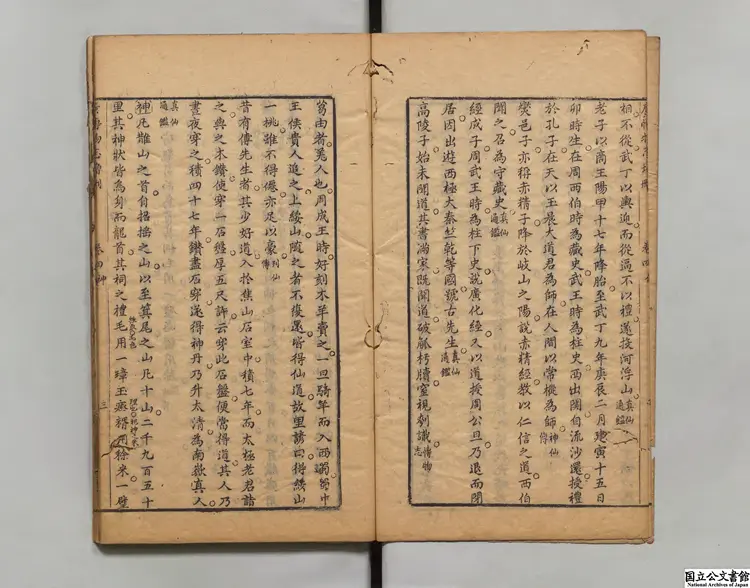 桓不從武丁以輿迎而從過不以禮遂投河浮山真仙通鑑
老子以商王陽甲十七年降胎至武丁九年庚辰二月建寅十五日
卯時生在周西伯時為藏史武王時為柱史西出關自流沙還授禮
於孔子在天以王晨大道君為師在人間以常樅為師神仙傳
爕邑子亦得赤精子降於岐山之陽說赤精經教以仁信之道西伯
聞之召為守藏史真仙通鑑
經成子周武王時為柱下史說廣化經又以道授周公旦乃退而閒
居因出遊西極大秦竺乾等國號古先生真仙通鑑
高陵子始未聞道其書滿家既聞道破觚朽牘室視剞識博物志
葛由者羌人也周成王時好刻木羊賣之一旦騎羊而入西蜀蜀中
王侯貴人追之上綏山隨之者不復還皆得仙道故里諺曰得綏山
一桃雖不得僊亦足以豪列仙傳
昔有傅先生者其少好道入於焦山石室中積七年而太極老君詣
之與之木鑽使穿一石盤厚五尺許云穿此石盤便當得道其人乃
晝夜穿之積四十七年鑽盡石穿遂得神丹乃升太清為南嶽真人
真仙通鑑
神凡䧿山之首自招搖之山以至箕尾之山凡十山二千九百五十
里其神狀皆為鳥而龍首其祠之禮毛用一璋玉瘞糈用稌米一壁
卷四神
三
国立公文書館
National Archives of Japan